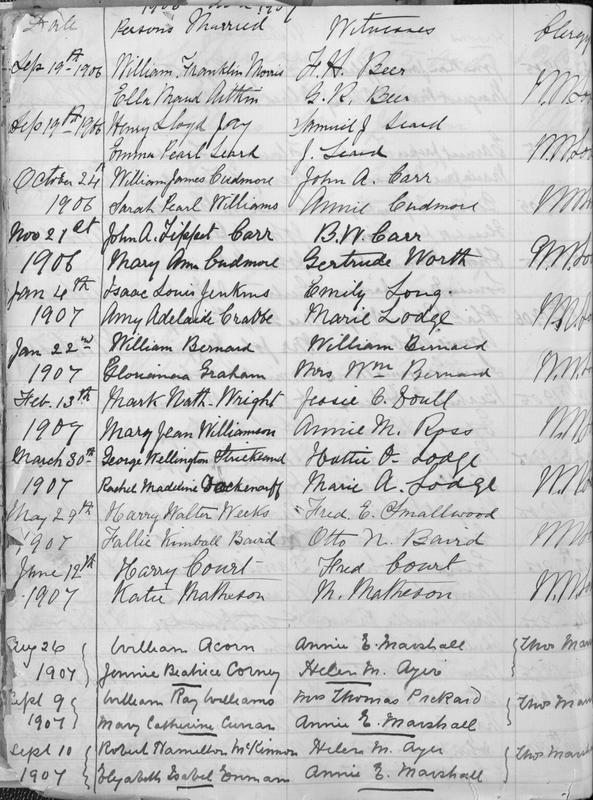 Date Persons Married Witnesses Clergy
Sep 19th 1906 William Franklin Norris F. H. Beer
Ella Maud Aitkin G. R. Beer
Sep 19th 1906 Henry Lloyd Jay Samuel J Leard
Emma Pearl Leard J. Leard
October 24th William James Cudmore John A. Carr
1906 Sarah Pearl Williams Annie Cudmore
Nov 21st John A. Tippet Carr B. W. Carr
1906 Mary Ann Cudmore Gertrude Worth
Jan 4th Isaac Louis Jenkins Emily Long
1907 Amy Adelaide Crabbe Marie Lodge
Jan 22nd William Bernard William Bernard
1907 Graham Mrs Wm Bernard
Feb. 13th Mark Nath. Wright Jessie C. Doull
1907 Mary Jean Williamson Annie M. Ross
March 30th George Wellington Strickland Hattie O. Lodge
1907 Rachel Madeline Marie A. Lodge
May 29th Harry Walter Weeks Fred. E. Smallwood
1907 Kimball Baird Otto N. Baird
June 12th Harry Court Fred Court
1907 Katie Matheson M. Matheson
Aug 26 William Acorn Annie E. Marshall Thos
1907 Jennie Beatrice Corney Helen M. Ayer
Sept 9 William Ray Williams Mrs Thomas Pickard Thos
1907 Mary Catherine Curran Annie E. Marshall
Sept 10 Robert Hamilton McKinnon Helen M. Ayer Thos
1907 Elizabeth Isabel Annie E. Marshall